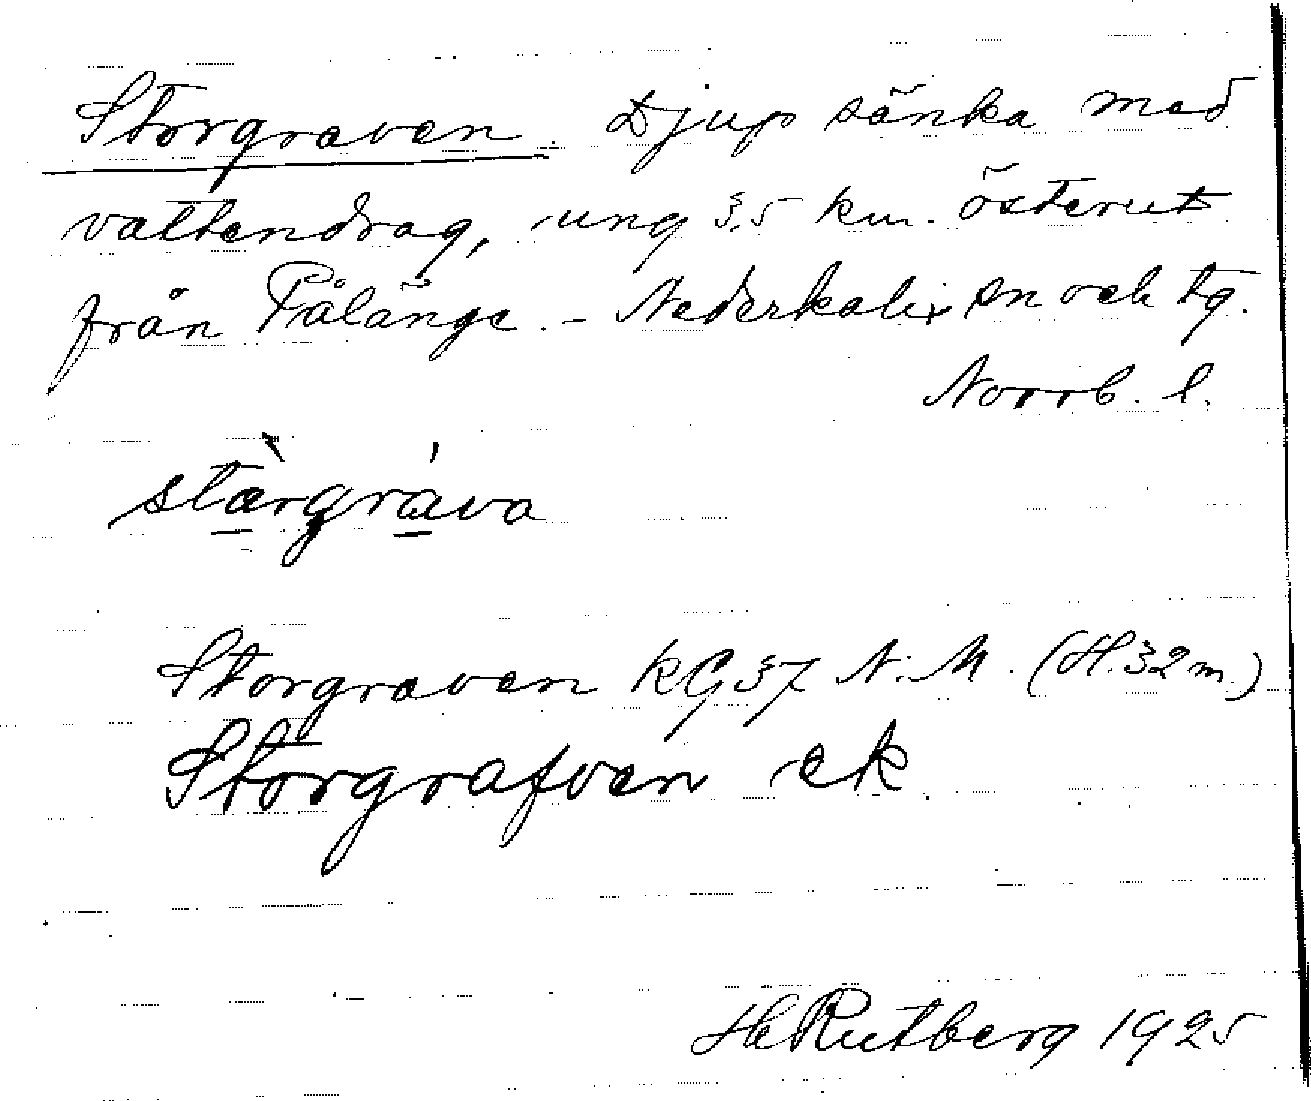 Storgraven. Djup sänka med
vattendrag, ung 3,5 km. österut
från Pålänge. - Nederkalix sn och tg.
Norrb. l.
stàrgráva
Storgraven kG 37 N.M. (H. 32 m.)
Storgrafven ek
He Rutberg 1925